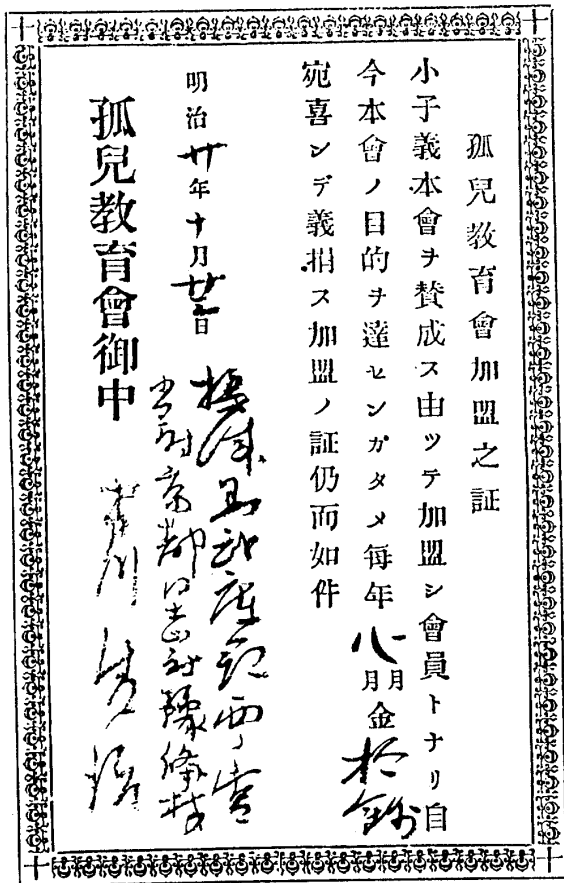 孤兒教育會加盟之証
小子義本會ヲ賛成ス由ツテ加盟シ會員トナリ自
今本會ノ目的ヲ達センガタメ毎年八月月金拾錢
宛喜ンデ義捐ス加盟ノ証仍而如件
明治廿年十月廿二日
當時京都同志社豫備校
孤兒教育會御中